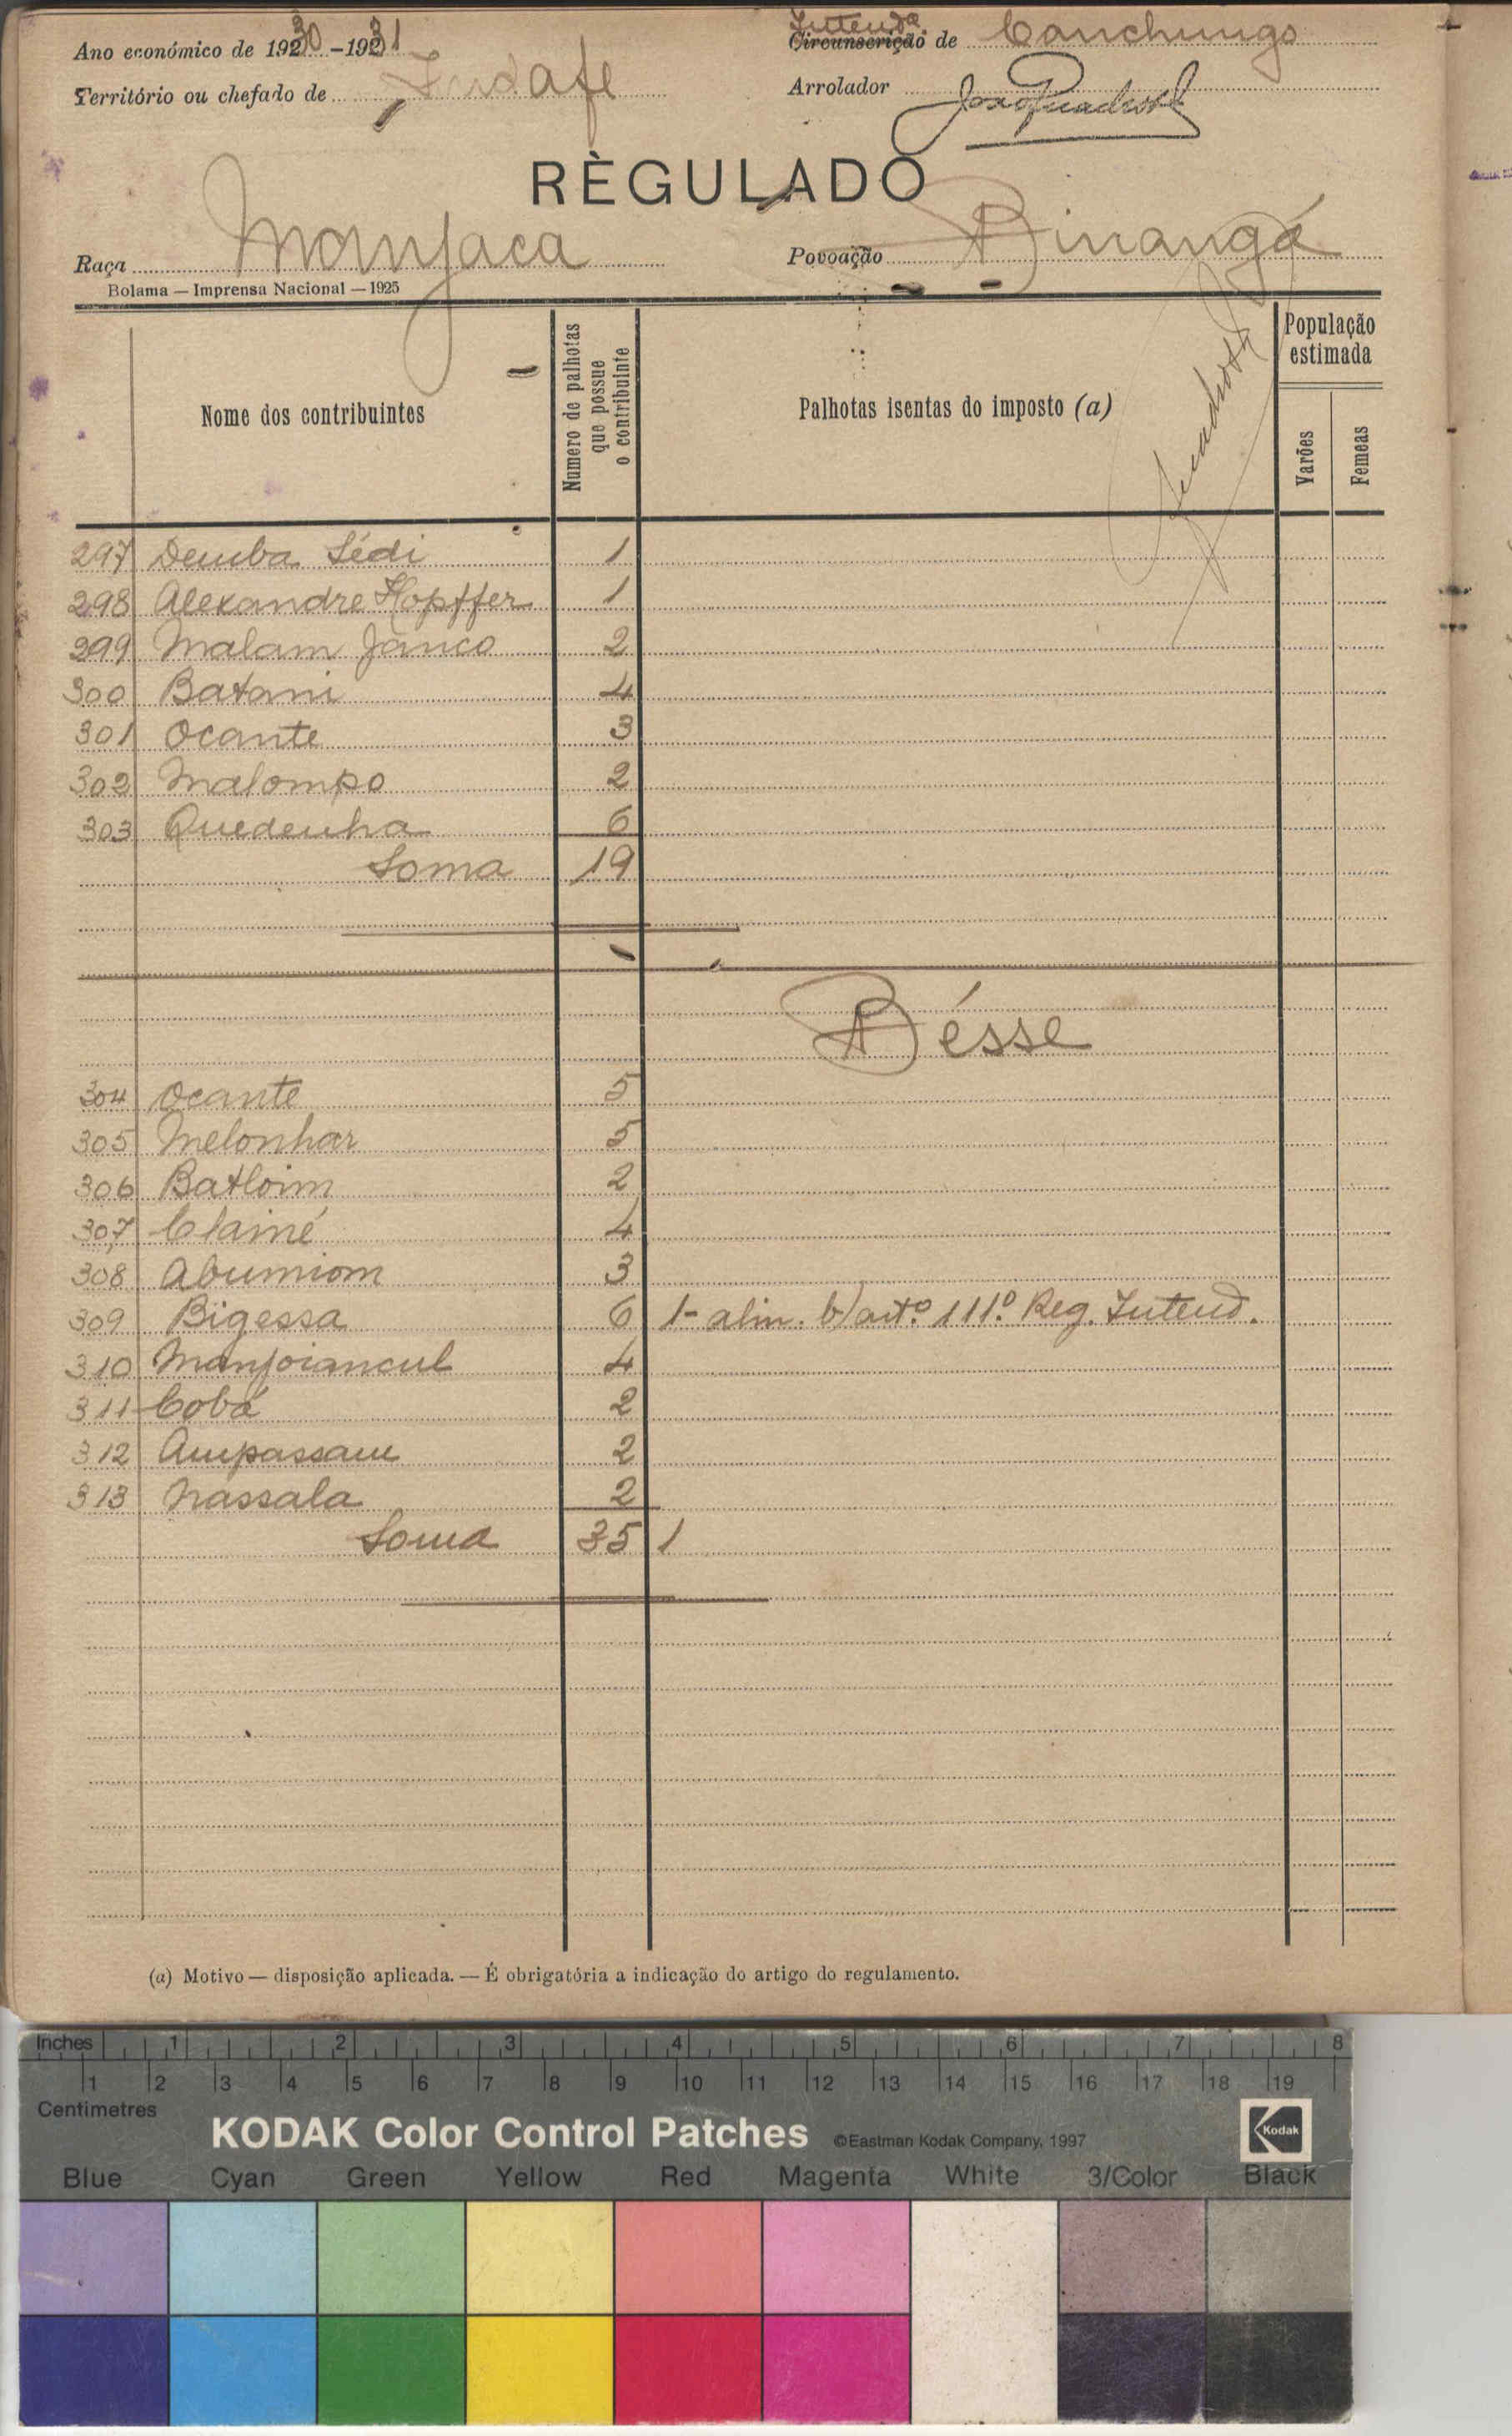 Ano económico de 1930-1931
Intendª
Circunscrição de Canchungo
Território ou chefado de
Arrolador
RÈGULADO
Raça Manjaca
Povoação Binangá
Bolama — Imprensa Nacional — 1925
Nome dos contribuintes
Numero de palhotas
que possue
o contribuinte
Palhotas isentas do imposto (a)
População
estimada
Varões
Femeas
297 Demba Sédi 1
298 Alexandre Hopffer 1
299 Malam Janco 2
300 Batani 4
301 Ocante 3
302 Malompo 2
303 Quedenha 6
Soma 19
Bésse
304 Ocante 5
305 Melonhar 5
306 Batloim 2
307 Clainé 4
308 Abumiom 3
309 Bigessa 6 1- alin. b) artº. 111º. Reg. Intend.
310 Manjoiancul 4
311 Cobá 2
312 Ampassam 2
313 Nassala 2
Soma 35 1
(a) Motivo — disposição aplicada. — É obrigatória a indicação do artigo do regulamento.
Inches 1 2 3 4 5 6 7 8
1 2 3 4 5 6 7 8 9 10 11 12 13 14 15 16 17 18 19
Centimetres
KODAK Color Control Patches ©Eastman Kodak Company, 1997 Kodak
Blue Cyan Green Yellow Red Magenta White 3/Color Black